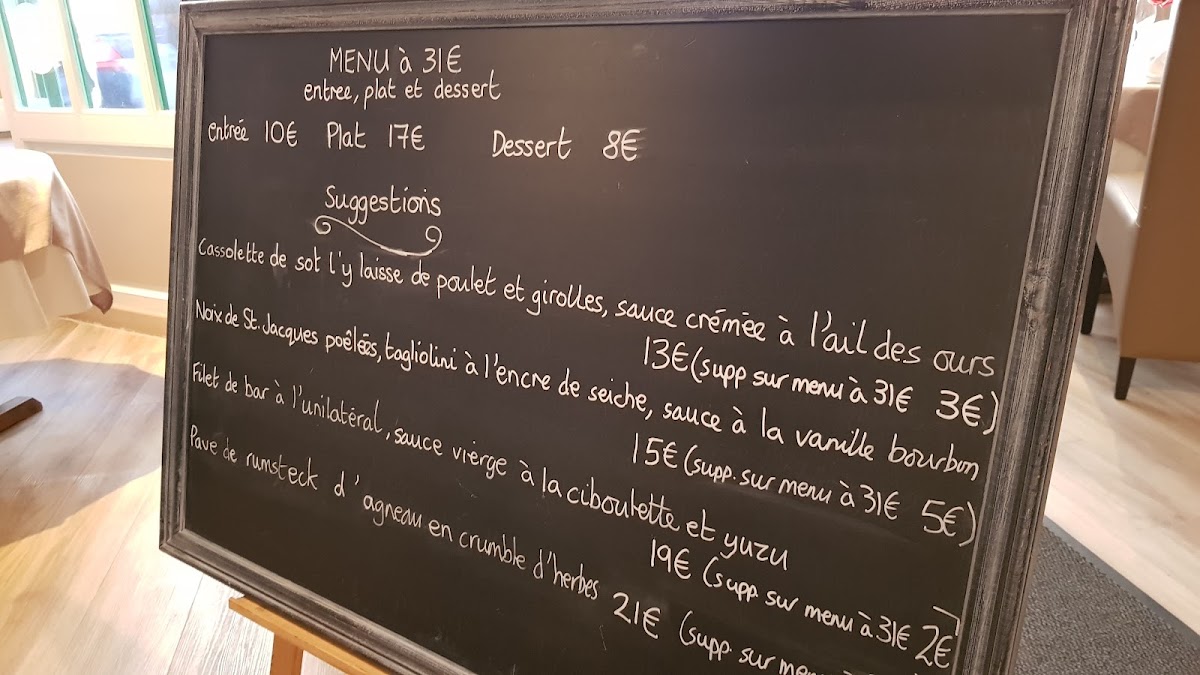 MENU à 31€
entree, plat et dessert
entrée 10€ Plat 17€ Dessert 8€
Suggestions
Cassolette de sot l'y laisse de poulet et girolles, sauce crémée à l'ail des ours
13€ (supp sur menu à 31€ 3€)
Noix de St. Jacques poêlées, tagliolini à l'encre de seiche, sauce à la vanille bourbon
15€ (supp. sur menu à 31€ 5€)
Filet de bar à l'unilatéral, sauce vierge à la ciboulette et yuzu
19€ (supp. sur menu à 31€ 2€
Pave de rumsteck d'agneau en crumble d'herbes
21€ (supp. sur menu